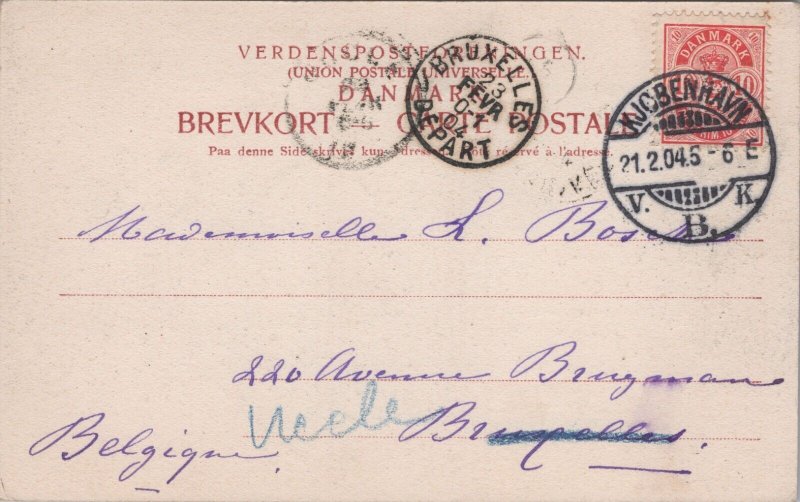 VERDENSPOSTFORENINGEN.
(UNION POSTALE UNIVERSELLE.)
DANMARK
BREVKORT — CARTE POSTALE
Paa denne Side skrives kun
réservé à l'adresse.
DANMARK
10 10
BRUXELLES
23
FEVR
04
DÉPART
KJØBENHAVN
21.2.04.5-6 E
V. K.
B.
Mademoiselle L. Bosch
220 Avenue Brugmann
Uccle Bruxelles.
Belgique